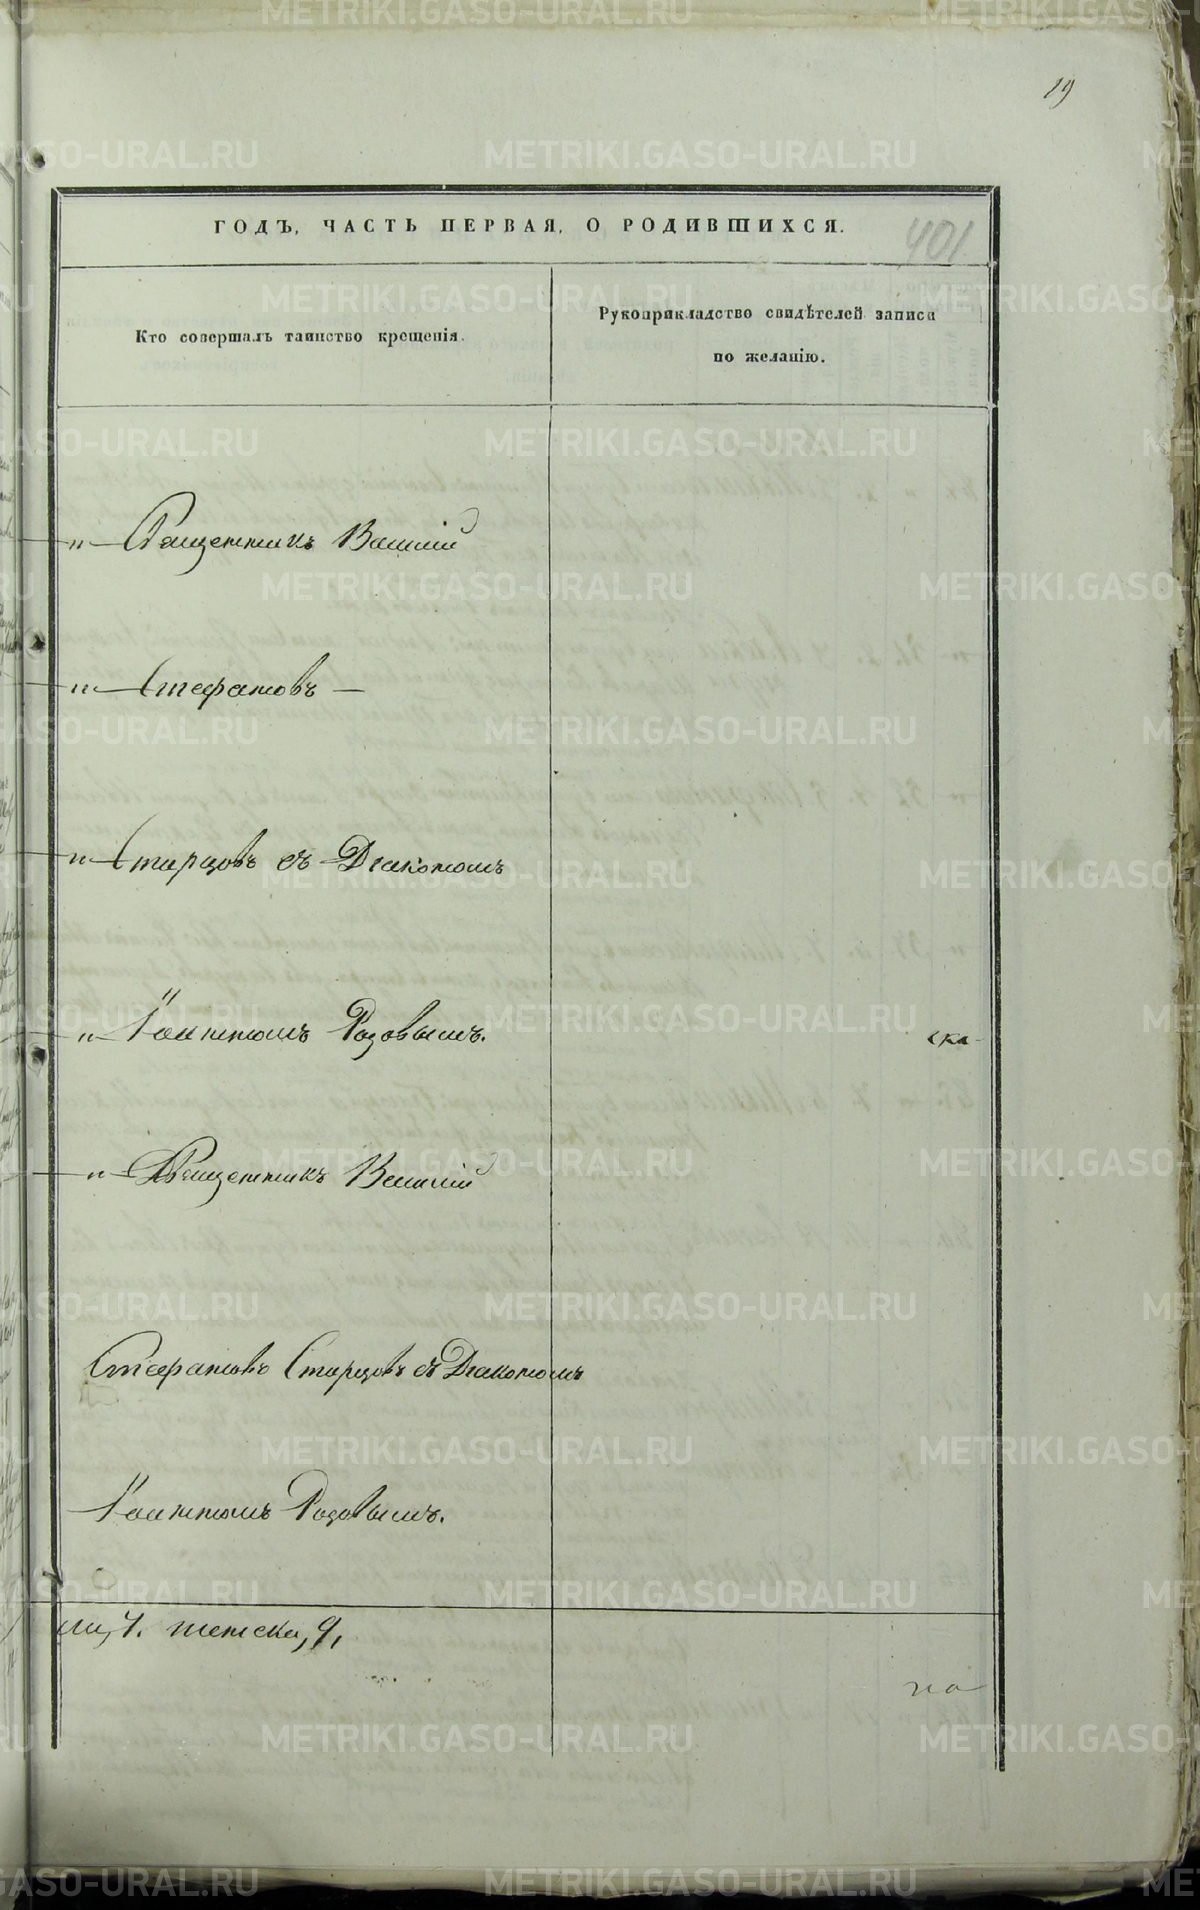 19
ГОДЪ, ЧАСТЬ ПЕРВАЯ, О РОДИВШИХСЯ.
401
Кто совершалъ таинство крещенія.
Рукоприкладство свидѣтелей записи
по желанію.
„ Священникъ Василій
„ Стефановъ
„ Старцовъ съ Діакономъ
„ Іоанномъ Розовымъ.
ска
„ Священникъ Василій
Стефановъ Старцовъ съ Діакономъ
Іоанномъ Розовымъ.
женска, 9,
по
METRIKI.GASO-URAL.RU